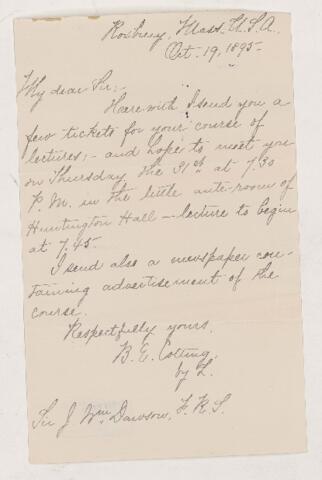 Roxbury, Mass. U.S.A.
Oct. 19, 1895.
My dear Sir:-
Herewith I send you a
few tickets for your course of
lectures; - and hope to meet you
on Thursday the 31st at 7.30
P.M. in the little ante-room of
Huntington Hall - lecture to begin
at 7.45-
I send also a newspaper con-
taining advertisement of the
course.
Respectfully yours,
B. E. Cotting,
by L.
Sir J. Wm. Dawson, F.R.S.